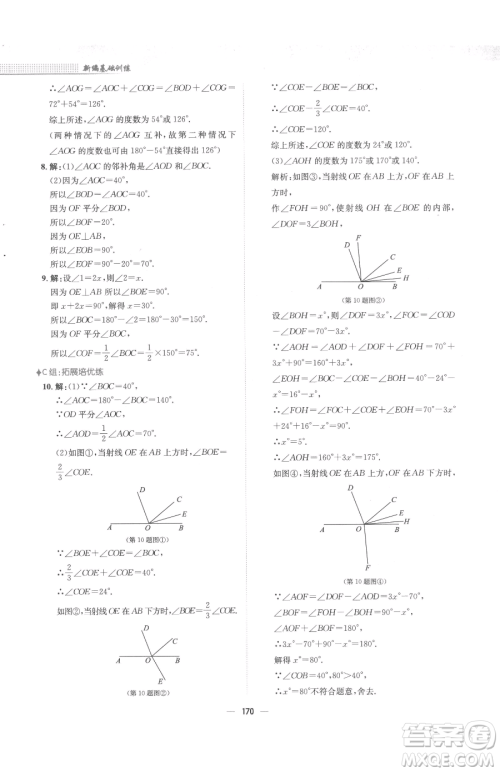 新编基础训练
∴∠AOG=∠AOC+∠COG=∠AOC+∠BOG=
72°+54°=126°.
综上所述，∠AOG的度数为54°或126°.
(两种情况下的∠AOG互补，故第二种情况下
∠AOG的度数也可由180°-54°直接得126°.)
8.解：(1)∠AOC的邻补角是∠AOD和∠BOC.
(2)因为∠AOC=40°，
所以∠BOD=∠AOC=40°.
因为OF平分∠BOD，
所以∠BOF=20°.
因为OE⊥AB，
所以∠EOB=90°.
所以∠EOF=90°-20°=70°.
9.解：设∠1=2x，则∠2=x.
因为OE⊥AB，所以∠BOE=90°.
即x+2x=90°，解得x=30°.
所以∠BOC=180°-∠2=180°-30°=150°.
所以∠COF=1/2∠BOC=1/2×150°=75°.
C组:拓展培优练
10.解：(1)∵∠BOC=40°，
∴∠AOC=180°-∠BOC=140°.
∵OD平分∠AOC，
∴∠AOD=1/2∠AOC=70°.
(2)如图①，当射线OE在AB上方时，∠BOE=
2/3∠COE.
D
C
E
A
O
B
(第10题图①)
∵∠BOE+∠COE=∠BOC，
∴2/3∠COE+∠COE=40°.
∴∠COE=24°.
如图②，当射线OE在AB下方时，∠BOE=2/3∠COE.
D
C
A
O
B
E
(第10题图②)
∵∠COE-∠BOE=∠BOC，
∴∠COE-2/3∠COE=40°.
∴∠COE=120°.
综上所述，∠COE的度数为24°或120°.
(3)∠AOH的度数为175°或160°.
解析：如图③，当射线OE在AB上方，OF在AB上方时，
作∠FOH=90°，使射线OH在∠BOE的内部，
∠DOF=3∠BOH.
F
D
C
E
H
A
O
B
(第10题图③)
设∠BOH=x°，则∠DOF=3x°，∠AOH=180°-x°.
∵∠FOH=90°，
∴∠AOF=∠AOD+∠DOF=70°+3x°.
∴∠AOH=∠AOF+∠FOH=70°+3x°+90°=
3x°+160°.
∴3x°+160°=180°-x°.
∴x°=5°.
∴∠AOH=175°.
如图④，当射线OE在AB上方，OF在AB下方时，
D
C
E
H
A
O
B
F
(第10题图④)
∵∠AOF=∠DOF-∠AOD=3x°-70°，
∠AOH=180°-x°，
∴∠AOF+∠AOH+∠FOH=360°.
∴3x°-70°+180°-x°+90°=360°.
解得x°=80°.
∵∠COB=40°，80°>40°，
∴x°=80°不符合题意，舍去.
170